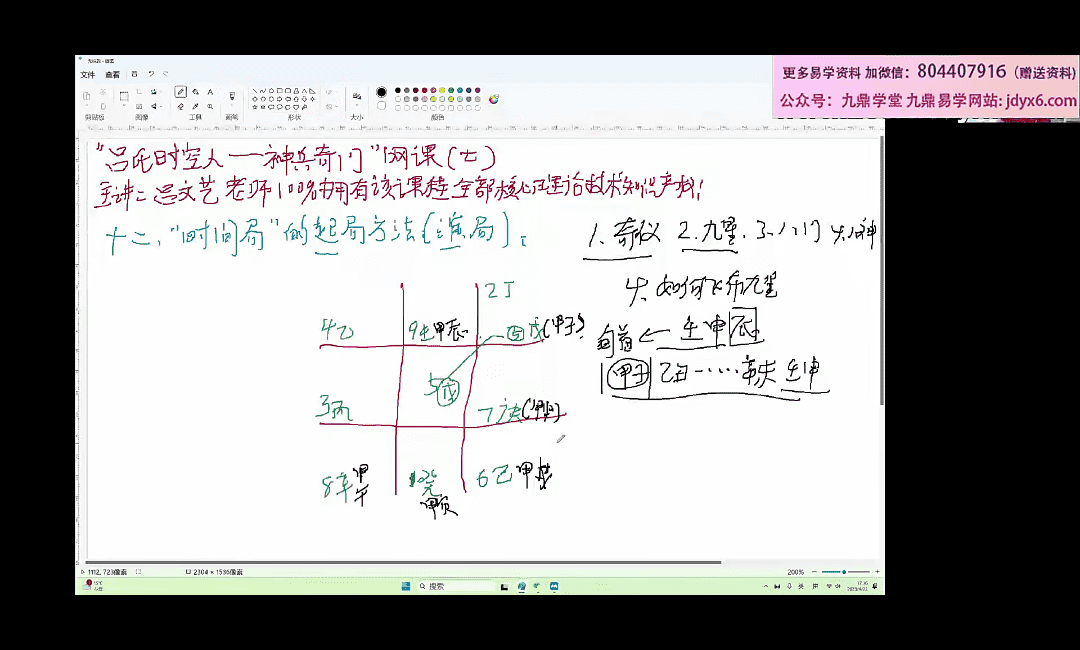 更多易学资料 加微信：804407916（赠送资料）
公众号：九鼎学堂 九鼎易学网站：jdyx6.com
文件 查看
剪贴板 图像 工具 画笔 形状 大小 颜色
"吕氏时空人——神兵奇门"网课（七）
主讲：吕文艺老师100%拥有该课程全部核心理论技术知识产权！
十二、"时间局"的起局方法（演局）：
1、奇仪 2、九星、3、八门 4、八神
4、如何飞布九星
旬首 ← 壬申 辰
甲子 乙丑……辛未 壬申
2丁
4乙 9壬甲辰 戊（甲子）
5戊
3丙 7庚
8辛甲午 6己甲戌
1112, 723像素 2304 × 1536像素 200%
15°C
搜索
英 拼